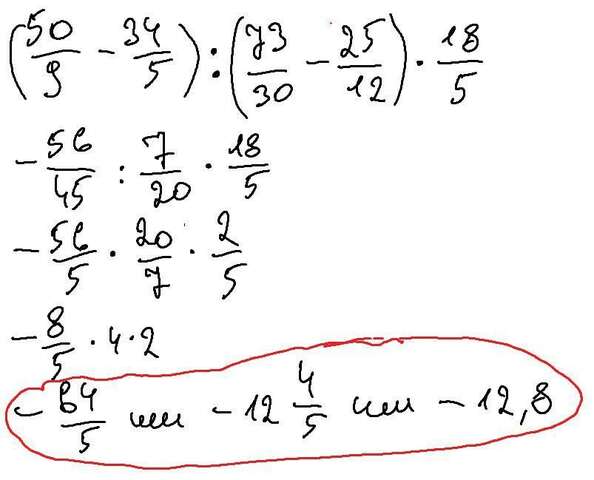 (50/9 - 34/5) : (73/30 - 25/12) · 18/5
- 56/45 : 7/20 · 18/5
- 56/5 · 20/7 · 2/5
- 8/5 · 4 · 2
- 64/5 или - 12 4/5 или - 12,8